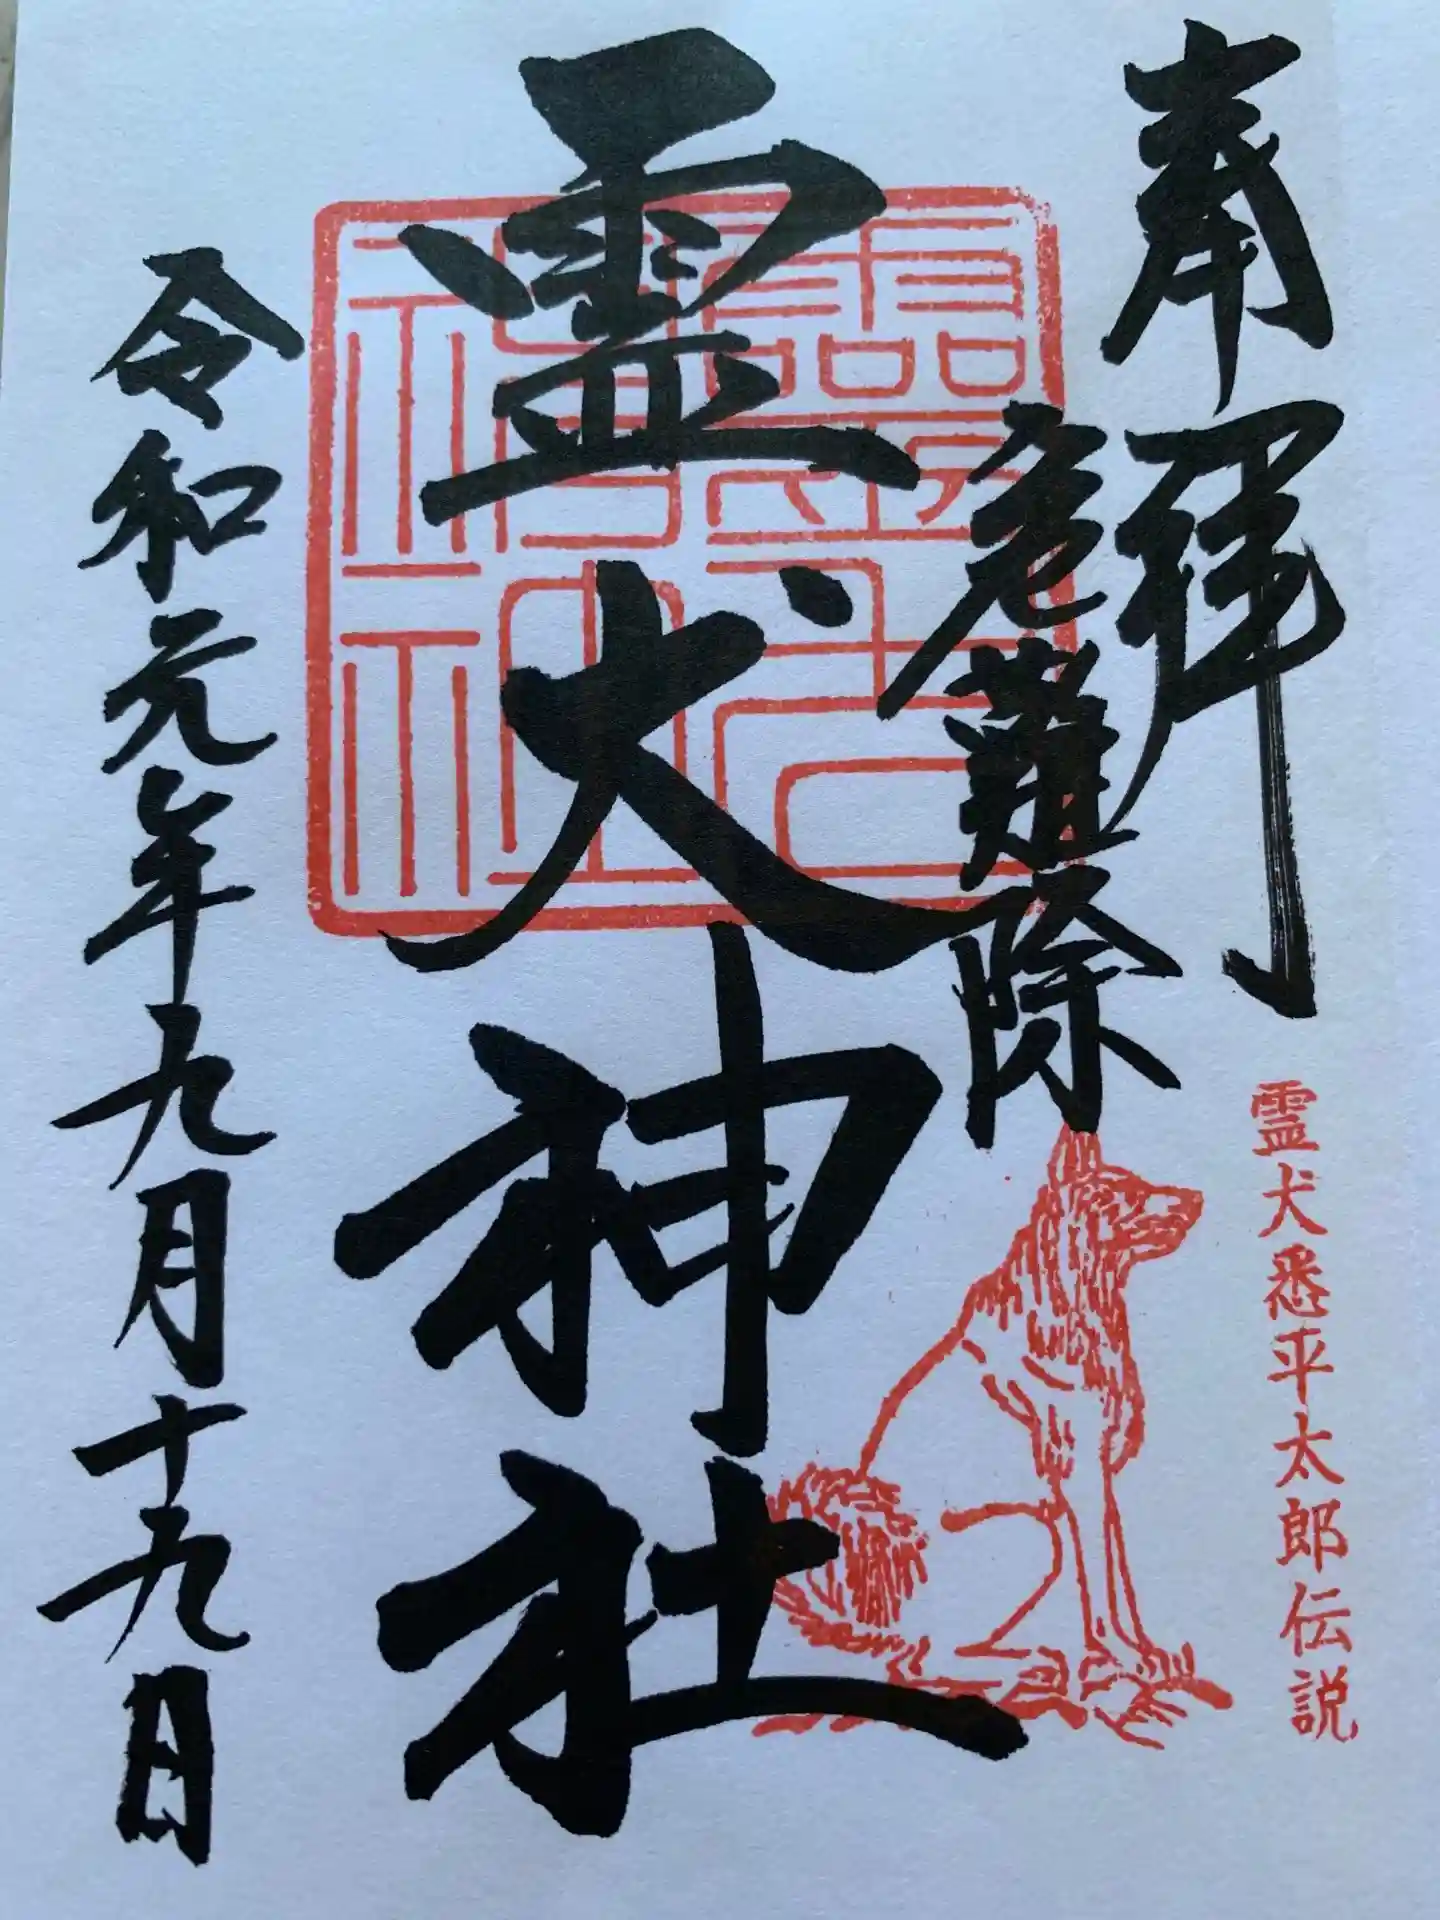 奉拝
危難除
霊犬悉平太郎伝説
霊犬神社
霊犬神社
令和元年九月十九日